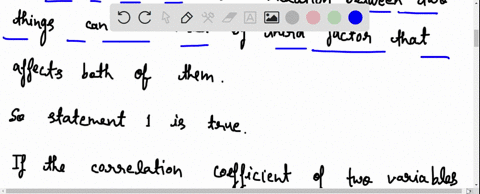 between two
things can of third factor that
affects both of them.
So statement 1 is true.
If the correlation coefficient of two variables